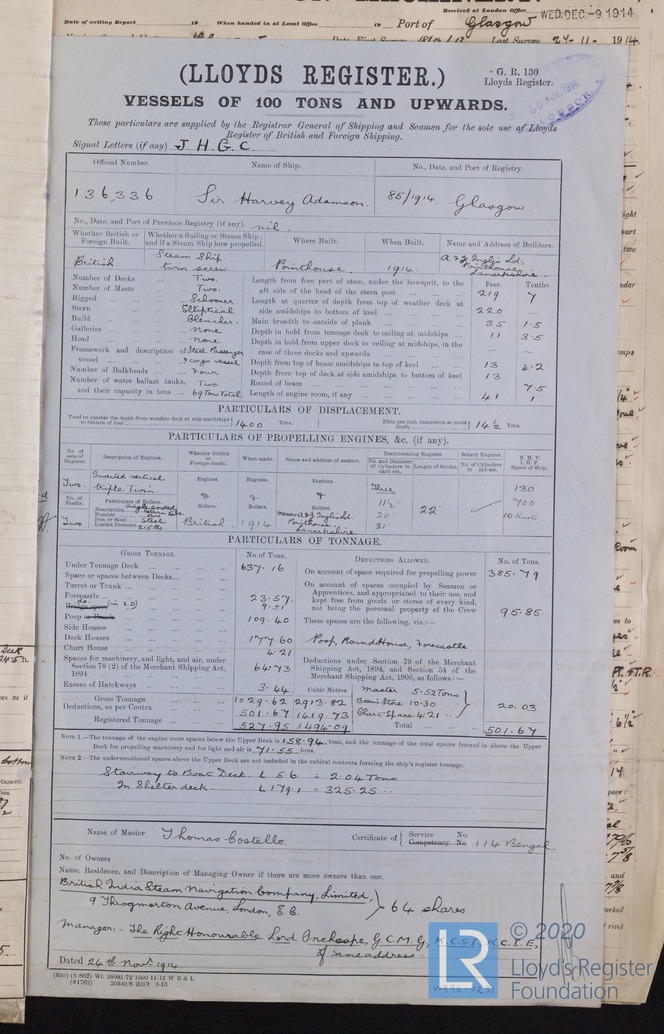 Received at London Office WED. DEC -9. 1914
Date of writing Report 19 When handed in at Local Office 19 Port of Glasgow
Last Survey 24-11-1914
G. R. 130
Lloyds Register.
(LLOYDS REGISTER.)
VESSELS OF 100 TONS AND UPWARDS.
These particulars are supplied by the Registrar General of Shipping and Seamen for the sole use of Lloyds
Register of British and Foreign Shipping.
Signal Letters (if any) J. H. G. C.
Official Number. Name of Ship. No., Date, and Port of Registry.
136,336. Sir Harvey Adamson. 85/1914. Glasgow.
No., Date, and Port of Previous Registry (if any). nil.
Whether British or Foreign Built. Whether a Sailing or Steam Ship; and if a Steam Ship how propelled. Where Built. When Built. Name and Address of Builders.
British Steam Ship. twin screw. Pointhouse. 1914. A & J Inglis Ltd. Pointhouse, Lanarkshire.
Feet. Tenths
Number of Decks Two.
Number of Masts Two.
Rigged Schooner
Stern Elliptical
Build Clencher.
Galleries none
Head none
Framework and description of vessel Steel Passenger & cargo vessel
Number of Bulkheads Four
Number of water ballast tanks, and their capacity in tons Two. 69 Ton Total
Length from fore part of stem, under the bowsprit, to the aft side of the head of the stern post 219 7
Length at quarter of depth from top of weather deck at side amidships to bottom of keel 220 —
Main breadth to outside of plank 35 1·5
Depth in hold from tonnage deck to ceiling at midships 11 3·5
Depth in hold from upper deck to ceiling at midships, in the case of three decks and upwards — —
Depth from top of beam amidships to top of keel 13 4·2
Depth from top of deck at side amidships to bottom of keel 13
Round of beam 7·5
Length of engine room, if any 41 1
PARTICULARS OF DISPLACEMENT.
Total to quarter the depth from weather deck at side amidships to bottom of keel 1400 Tons. Ditto per inch immersion at same depth 14½ Tons.
PARTICULARS OF PROPELLING ENGINES, &c. (if any).
No. of sets of Engines. Description of Engines. Whether British or Foreign made. When made. Name and address of makers. Reciprocating Engines. Rotary Engines. N. H. P. I. H. P. Speed of Ship.
No. and Diameter of Cylinders in each set. Length of Stroke. No. of Cylinders in each set.
Two. Inverted vertical triple Twin Engines. Engines. Engines. Three 130
No. of Shafts. Particulars of Boilers. & & & 11½ 22" 700
Description Single ended Boilers. Boilers. Boilers. 20" 10 Knots
Number
Iron or Steel Steel
Loaded Pressure
Two British 1914 Messrs A & J Inglis Ltd. Pointhouse, Lanarkshire 31"
PARTICULARS OF TONNAGE.
GROSS TONNAGE. No of Tons. DEDUCTIONS ALLOWED. No. of Tons.
Under Tonnage Deck 637.16
Space or spaces between Decks
Turret or Trunk
Forecastle 23.57
9.51
Poop 109.40
Side Houses
Deck Houses 177.60
Chart House 4.21
Spaces for machinery, and light, and air, under Section 78 (2) of the Merchant Shipping Act, 1894 64.73
Excess of Hatchways 3.44 Cubic Metres
Gross Tonnage 1029.62 2913.82
Deductions, as per Contra 501.67 1419.73
Registered Tonnage 527.95 1494.09
On account of space required for propelling power 385.79
On account of spaces occupied by Seamen or Apprentices, and appropriated to their use, and kept free from goods or stores of every kind, not being the personal property of the Crew 95.85
These spaces are the following, viz.:—
Poop, Round House, Forecastle
Deductions under Section 79 of the Merchant Shipping Act, 1894, and Section 54 of the Merchant Shipping Act, 1906, as follows:—
Master 5.52 Tons
Bosn's Store 10.30
Chart Space 4.21 20.03
Total 501.67
NOTE 1.—The tonnage of the engine room spaces below the Upper Deck is 158.94 tons, and the tonnage of the total spaces framed in above the Upper
Deck for propelling machinery and for light and air is 71.55 tons.
NOTE 2.—The undermentioned spaces above the Upper Deck are not included in the cubical contents forming the ship's register tonnage.
Stairway to Boat Deck. L 5.6 = 2.04 Tons
In Shelter deck. L 179.1 = 325.25 "
Name of Master Thomas Costello. Certificate of { Service No. Competency No. 114 Bengal
No. of Owners
Name, Residence, and Description of Managing Owner if there are more owners than one.
British India Steam Navigation Company, Limited,
9 Throgmorton Avenue, London, E.C. } 64 shares.
Manager:- The Right Honourable Lord Inchcape, G.C.M.G., K.C.S.I., K.C.I.E.,
of same address.
Dated 24th Novr. 1914.
© 2020
LR Lloyd's Register
Foundation